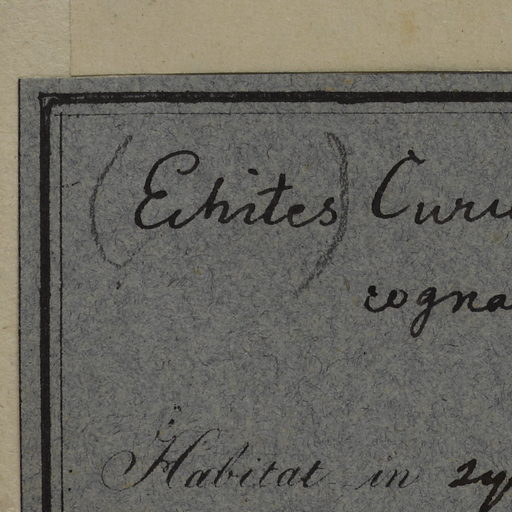 (Echites) Curu
cogna
Habitat in sy